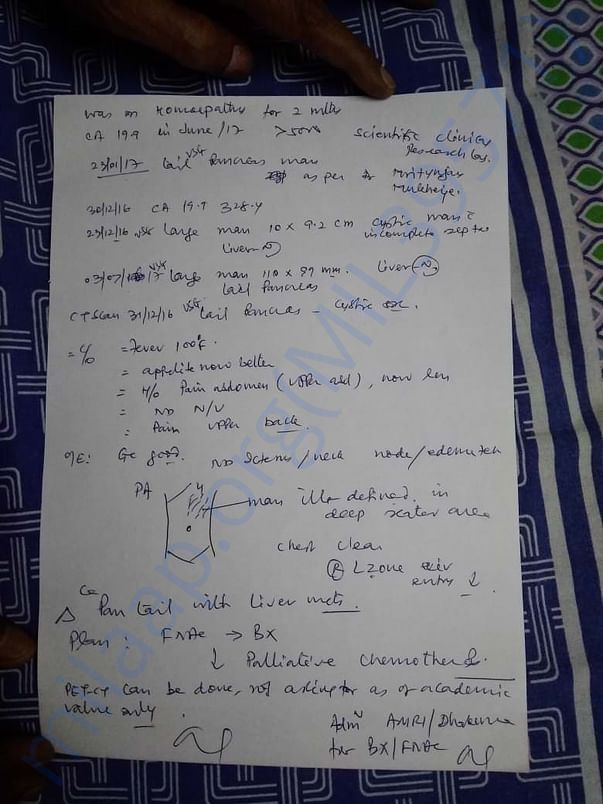 was on Homoepathy for 2 mths
CA 19.9 in June/17 >500 Scientific Clinical Research Lab.
23/01/17 USG tail Pancreas mass
as per Mrityunjay Mukherjee.
30/12/16 CA 19.9 328.4
29/12/16 USG Large mass 10 x 9.2 cm cystic mass c̄ incomplete septa
Liver (N)
03/07/17 USG large mass 110 x 89 mm. Liver (N)
tail Pancreas
CT Scan 31/12/16 tail Pancreas - Cystic
= C/o = Fever 100°F.
= appetite now better
= H/o Pain abdomen (upper abd), now less
= No N/V
= Pain upper back.
O/E: GC good. No Icterus/neck node/edema
PA
mass ill defined in
deep seated area
chest clear
(R) L zone air
entry ↓.
△ Ca Pan tail with Liver mets.
Plan: FNAC → BX
↓ Palliative chemother
PET-CT can be done, not asking for as of academic
value only.
Admn AMRI/Dhakuria
for BX/FNAC
milaap.org(MIL